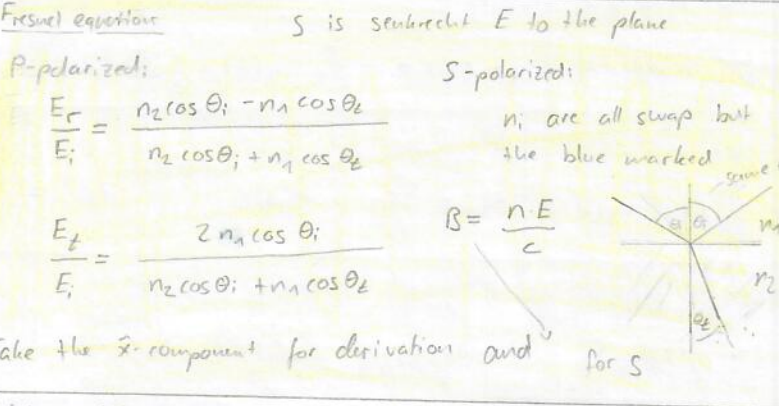 Fresnel equation
S is senkrecht E to the plane
P-polarized:
E_r / E_i = (n_2 cos θ_i - n_1 cos θ_t) / (n_2 cos θ_i + n_1 cos θ_t)
E_t / E_i = 2 n_1 cos θ_i / (n_2 cos θ_i + n_1 cos θ_t)
S-polarized:
n_i are all swap but
the blue marked
B = n·E / c
same
θ_i θ_r
n_1
n_2
θ_t
Take the x̂-component for derivation and for S